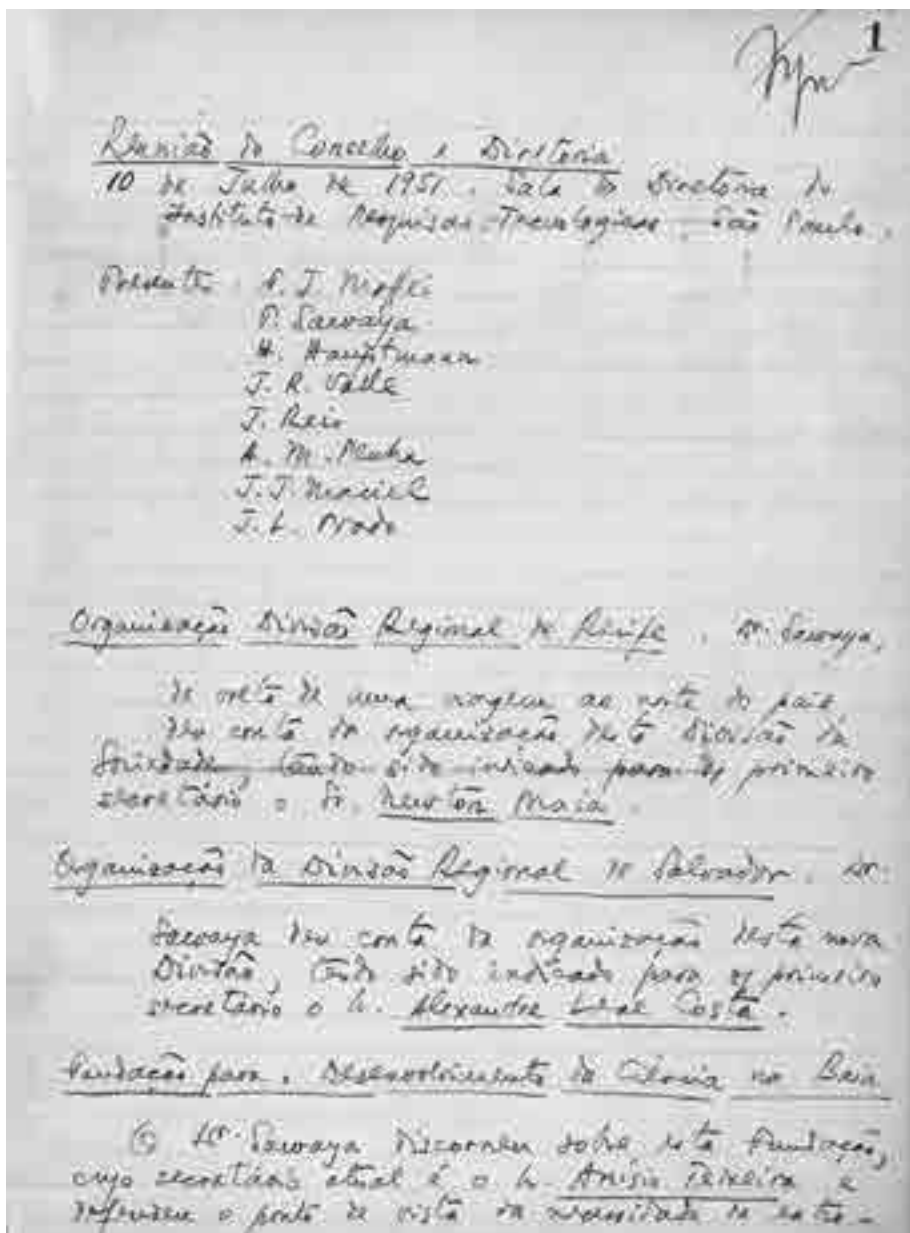 1
Reunião do Conselho e Diretoria
10 de Julho de 1951. Sala da Diretoria do
Instituto de Pesquisas Tecnologicas. São Paulo.
Presentes:
P. Sawaya
H. Hauptmann
J. R. Valle
J. Reis
A. M.
J. J. Maciel
J. L. Prado
Organização Divisão Regional do Recife. Dr. Sawaya,
de volta de uma viagem ao norte do país
deu conta da organização desta Divisão da
Sociedade, tendo sido indicado para primeiro
secretário o Dr. Newton Maia.
Organização da Divisão Regional de Salvador. Dr.
Sawaya deu conta da organização desta nova
Divisão, tendo sido indicado para primeiro
secretário o Dr. Alexandre Leal Costa.
Fundação para. Desenvolvimento da Ciencia na Baia
O Dr. Sawaya discorreu sobre esta Fundação,
cujo secretário atual é o Dr. Anísio Teixeira e
defendeu o ponto de vista da necessidade de entro-